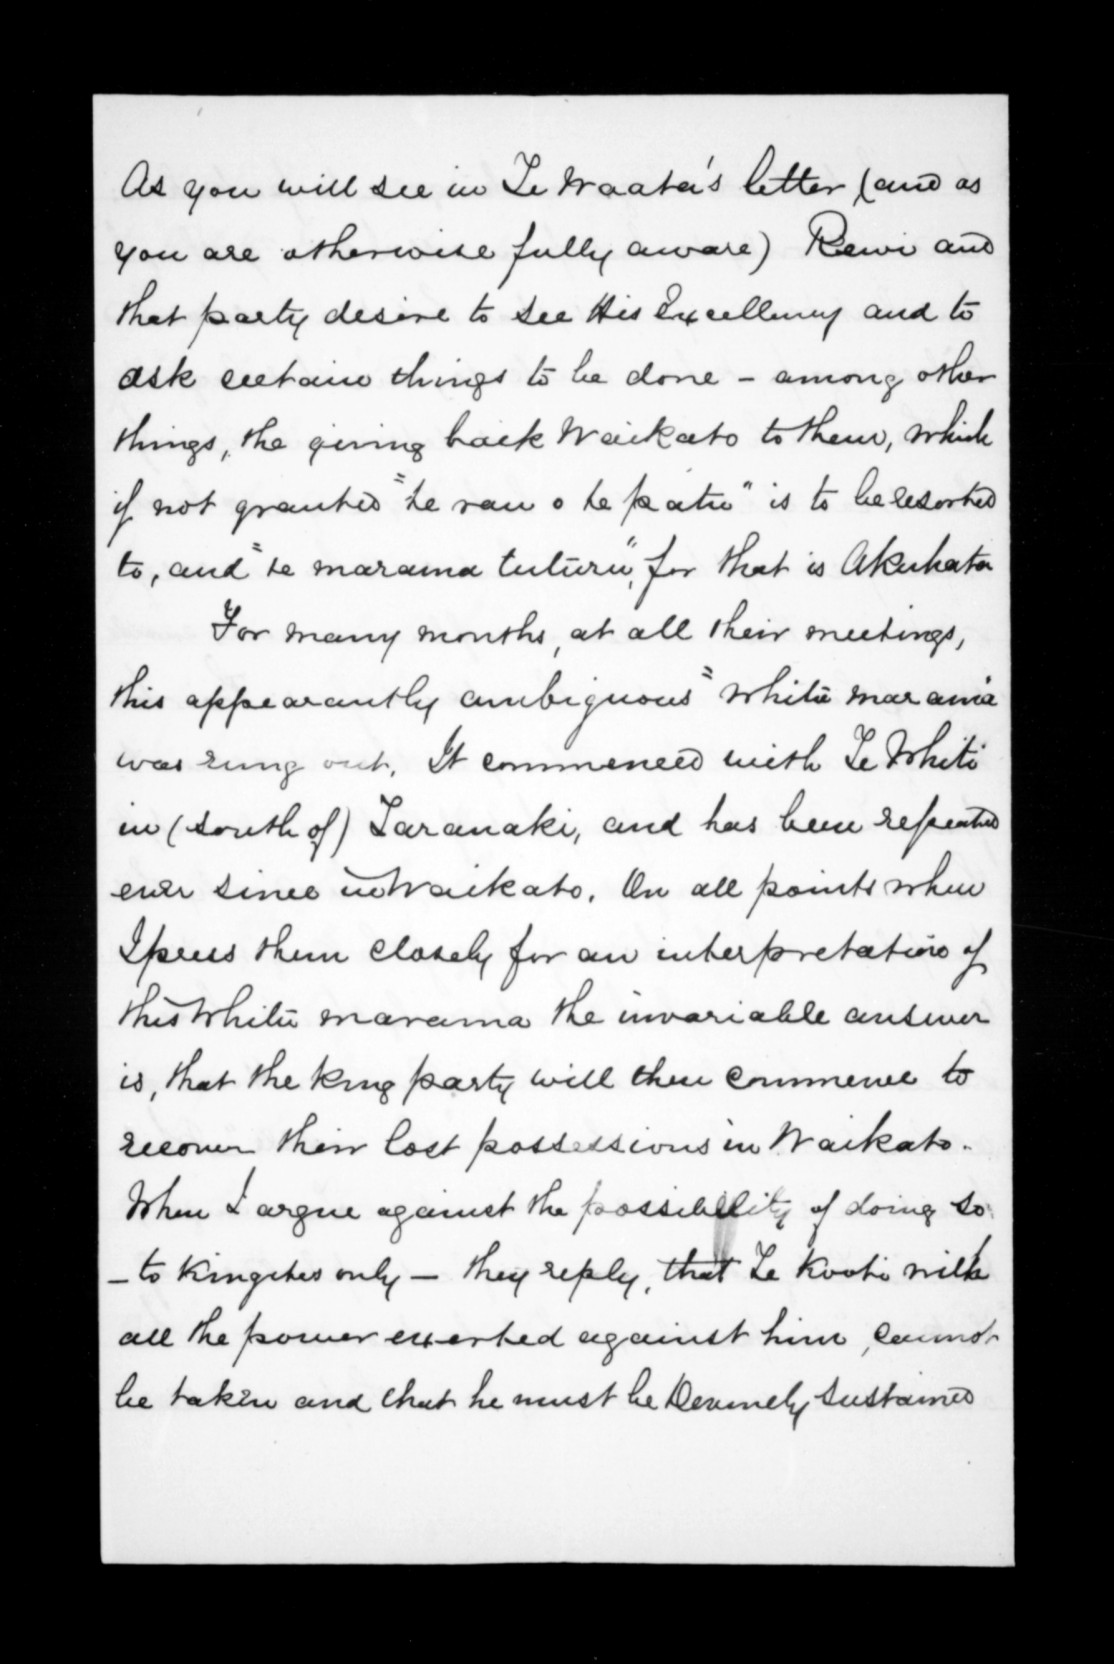 As you will see in Te Waata's letter (and as
you are otherwise fully aware) Rewi and
that party desire to see His Excellency and to
ask certain things to be done - among other
things, the giving back Waikato to them, which
if not granted "te rau o te patu" is to be resorted
to, and "te marama tuturu", for that is Akuhata
For many months, at all their meetings,
this appearantly ambiguous "whitu marama
was rung out. It commenced with Te Whiti
in (south of) Taranaki, and has been repeated
ever since in Waikato. On all points when
I press them closely for an interpretation of
this whitu marama the invariable answer
is, that the king party will then commence to
recover their lost possessions in Waikato.
When I argue against the possibility of doing so
- to Kingites only - they reply, that Te Kooti with
all the power exerted against him, cannot
be taken and that he must be Devinely sustained